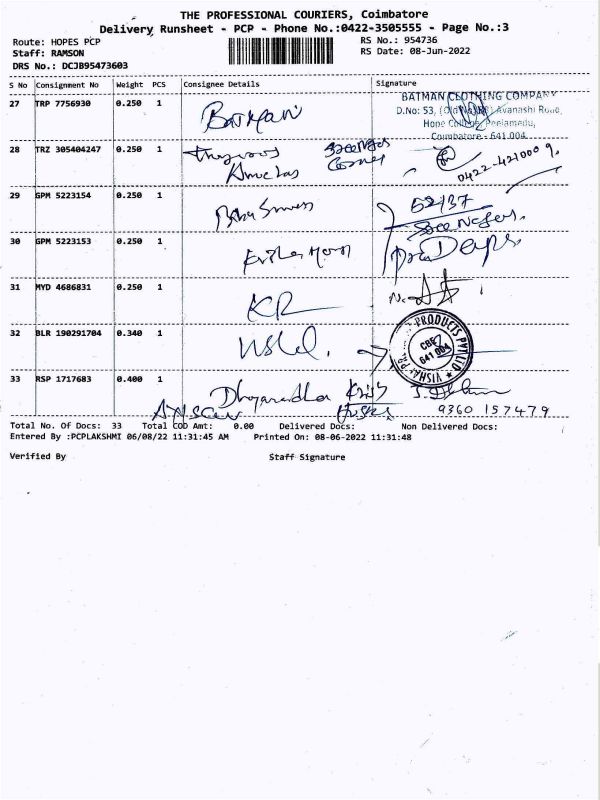 THE PROFESSIONAL COURIERS, Coimbatore
Delivery Runsheet - PCP - Phone No.:0422-3505555 - Page No.:3
Route: HOPES PCP
RS No.: 954736
Staff: RAMSON
RS Date: 08-Jun-2022
DRS No.: DCJB95473603
S No Consignment No Weight PCS Consignee Details Signature
27 TRP 7756930 0.250 1 Batman
BATMAN CLOTHING COMPANY
D.No: 53, Avanashi Road,
Hope College, Peelamedu,
Coimbatore - 641 004
28 TRZ 305404247 0.250 1
0422-4210009
29 GPM 5223154 0.250 1
52/37
30 GPM 5223153 0.250 1
31 MYD 4686831 0.250 1 KR
32 BLR 190291704 0.340 1
PRODUCTS PVT LTD
CBE
641 004
VISHAL
33 RSP 1717683 0.400 1
9360 157479
Total No. Of Docs: 33 Total COD Amt: 0.00 Delivered Docs: Non Delivered Docs:
Entered By :PCPLAKSHMI 06/08/22 11:31:45 AM Printed On: 08-06-2022 11:31:48
Verified By Staff Signature